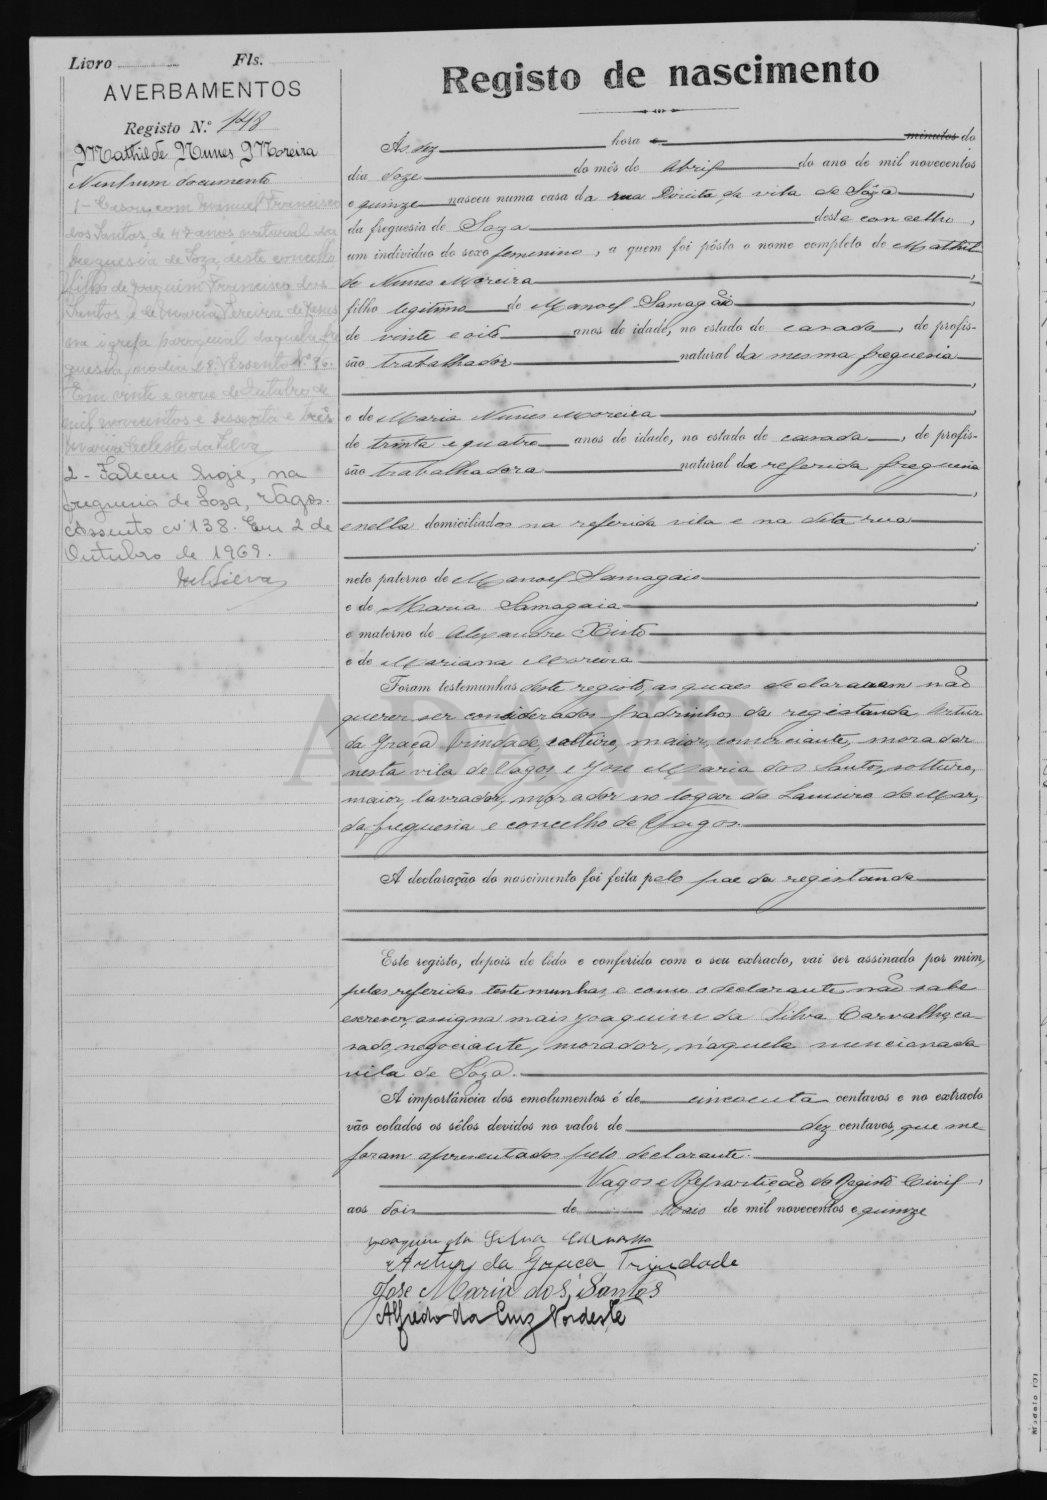 Livro Fls.
AVERBAMENTOS
Registo N.º 148
Mathilde Nunes Moreira
Nenhum documento
1 - Casou com Manuel Francisco
dos Santos, de 47 anos, natural da
freguesia de Soza, deste concelho
filho de Joaquim Francisco dos
Santos e de Maria Pereira de Jesus
na igreja paroquial daquela fre
guesia, no dia 28. Assento nº 96.
Em vinte e nove de Outubro de
mil novecentos e sessenta e três.
Maria Celeste da Silva
2 - Faleceu hoje, na
freguesia de Soza, Vagos.
Assento nº 138. Em 2 de
Outubro de 1969.
Registo de nascimento
As dez hora e minutos do
dia doze do mês de Abril do ano de mil novecentos
e quinze nasceu numa casa da rua Direita da vila de Sôza
da freguesia de Soza deste concelho,
um indivíduo do sexo femenino, a quem foi pôsto o nome completo de Mathil
de Nunes Moreira
filho legitimo de Manoel Samagaio
de vinte e oito anos de idade, no estado de casado, de profis-
são trabalhador natural da mesma freguesia
e de Maria Nunes Moreira
de trinta e quatro anos de idade, no estado de casada, de profis-
são trabalhadora natural da referida freguesia
e nella domiciliados na referida vila e na dita rua
neto paterno de Manoel Samagaio
e de Maria Samagaia
e materno de Alexandre
e de Mariana Moreira
Foram testemunhas deste registo, as quaes declararam não
querer ser considerados padrinhos da registanda, Artur
da Graça Trindade, solteiro, maior, comerciante, morador
nesta vila de Vagos, e José Maria dos Santos, solteiro,
maior, lavrador, morador no logar do Lameiro do Mar,
da freguesia e concelho de Vagos.
A declaração do nascimento foi feita pelo pae da registanda
Este registo, depois de lido e conferido com o seu extracto, vai ser assinado por mim,
pelas referidas testemunhas, e como o declarante não sabe
escrever, assigna mais Joaquim da Silva Carvalho, ca-
sado, negociante, morador, n'aquela mencionada
vila de Soza.
A importância dos emolumentos é de cincoenta centavos e no extracto
vão colados os sêlos devidos no valor de dez centavos, que me
foram apresentados pelo declarante.
Vagos e Repartição do Registo Civil,
aos dois de Maio de mil novecentos e quinze
Joaquim da Silva Carvalho
Artur da Graça Trindade
José Maria dos Santos
Alfredo da Cruz Nordeste
ADAVR
Modelo